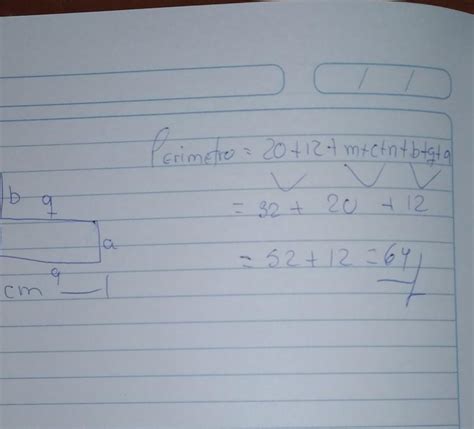 / /
Perimetro = 20+12+m+c+n+b+q+a
b q
= 32 + 20 + 12
a
= 52 + 12 = 64
cm q